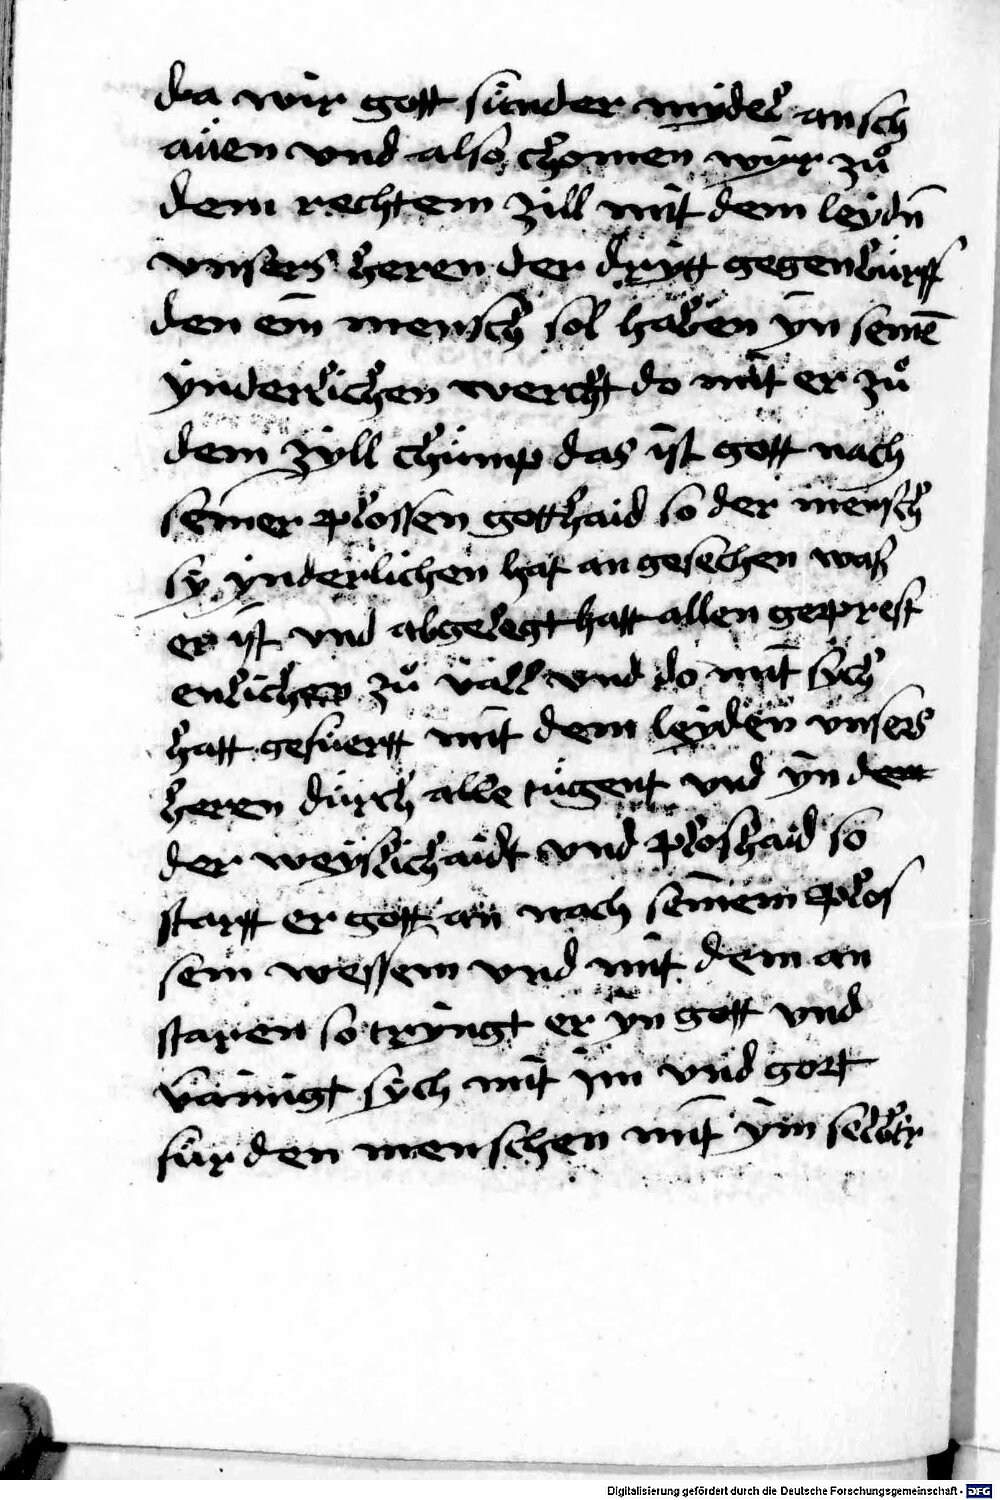 da wir gott sunder mydel ansch
auen vnd also chomen wyr zů
dem rechtem zill mit dem leydn̄
vnsers heren der drytt gegenburff
den ein mensch sol haben yn seinē
ynderlichen werch do mit er zů
dem zyll chump das ist gott nach
seiner plossen gotthaid so der mensch
sy ynderlichen hat angesechen was
er ist vnd abgelegt hatt allen geprest
enlichen zů vall vnd do mit sych
hatt gefuertt mit dem leyden vnsers
heren durch alle tugent vnd yn den
der weyslichaidt vnd ploshaid so
startt er gott an nach seinem plos
sem wessem vnd mit dem an
staren so tryngt er yn gott vnd
vainigt sych mit im vnd gott
fur den menschen mit ym selbtz
Digitalisierung gefördert durch die Deutsche Forschungsgemeinschaft - DFG